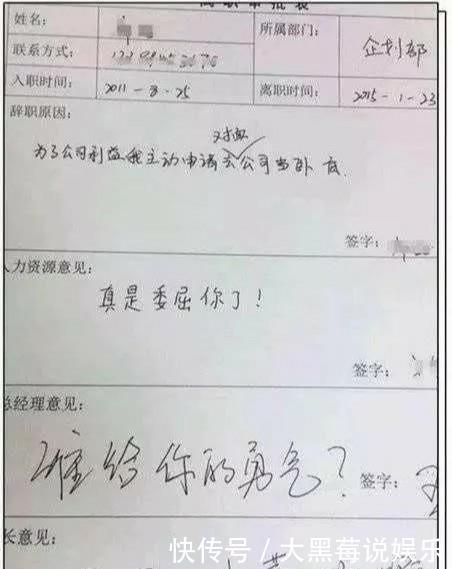 离职审批表
姓名：
所属部门： 企划部
联系方式：
入职时间： 2011-8-25
离职时间： 2015-1-23
辞职原因：
对面
为了公司利益我主动申请去公司当卧底.
签字：
人力资源意见：
真是委屈你了！
签字：
总经理意见：
谁给你的勇气？
签字：
长意见：
快传号/大黑莓说娱乐